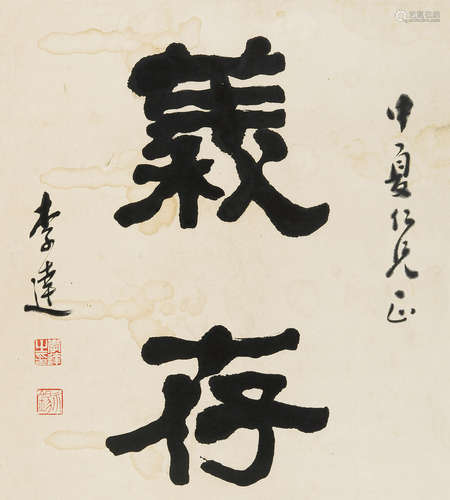 中夏仁兄正
義存
李達